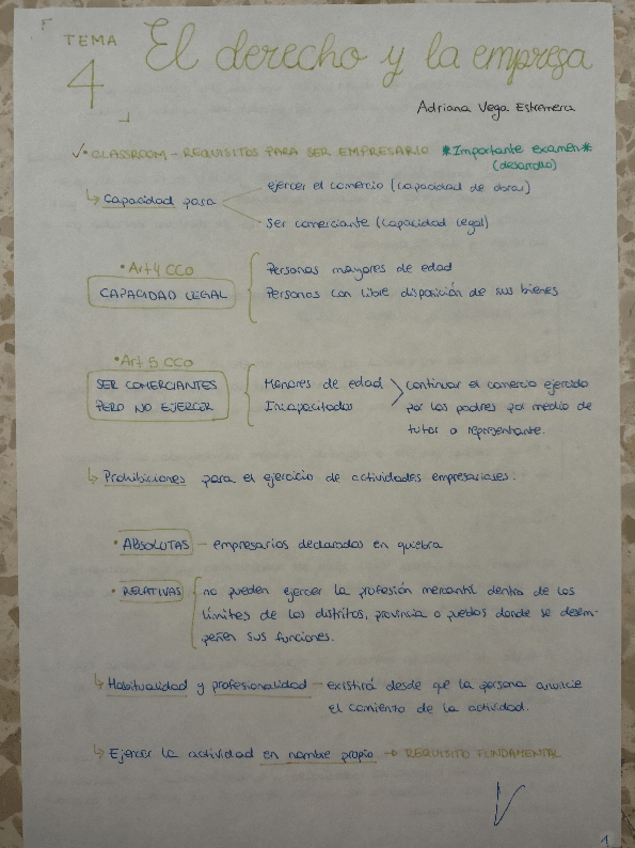 TEMA
4
El derecho y la empresa
Adriana Vega Estremera
CLASSROOM - REQUISITOS PARA SER EMPRESARIO *Importante examen*
(desarrollo)
↳ Capacidad para
ejercer el comercio (capacidad de obrar)
ser comerciante (capacidad legal)
• Art 4 CCO
CAPACIDAD LEGAL
Personas mayores de edad
Personas con libre disposición de sus bienes
• Art 5 CCO
SER COMERCIANTES
PERO NO EJERCER
Menores de edad
Incapacitados
continuar el comercio ejercido
por los padres por medio de
tutor o representante.
↳ Prohibiciones para el ejercicio de actividades empresariales:
• ABSOLUTAS - empresarios declarados en quiebra
• RELATIVAS
no pueden ejercer la profesión mercantil dentro de los
límites de los distritos, provincia o pueblos donde se desem-
peñen sus funciones.
↳ Habitualidad y profesionalidad - existirá desde que la persona anuncie
el comienzo de la actividad.
↳ Ejercer la actividad en nombre propio → REQUISITO FUNDAMENTAL
1